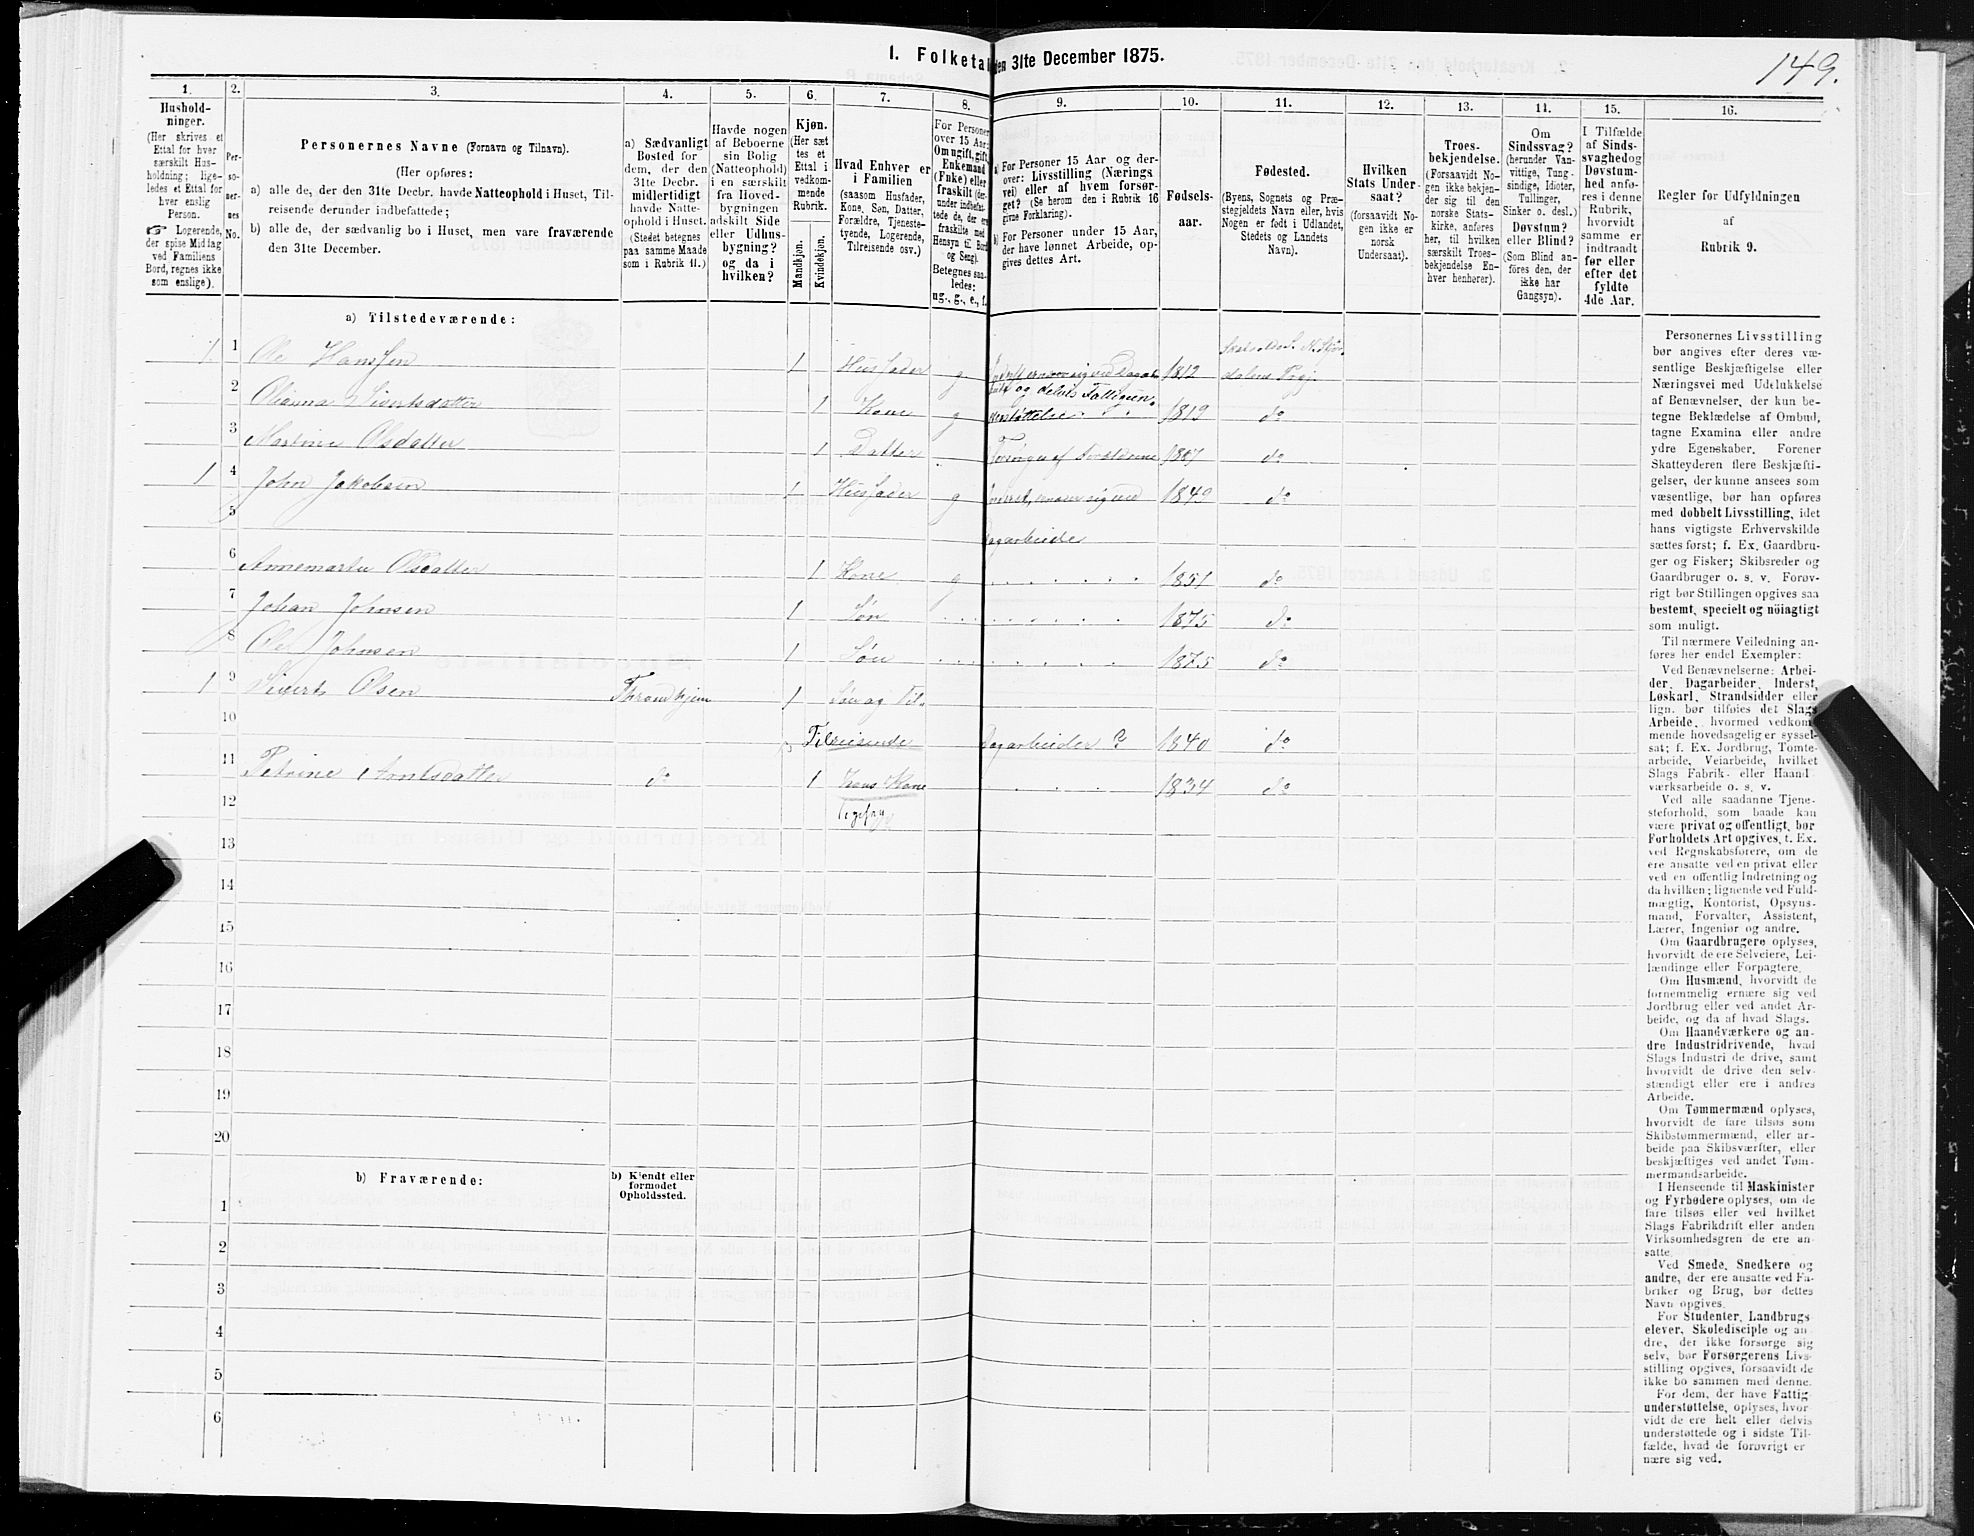 149.
1. Folketal den 31te December 1875.
1.
Hushold-
ninger.
(Her skrives et
Ettal for hver
særskilt Hus-
holdning; lige-
ledes et Ettal for
hver enslig
Person.
☞ Logerende,
der spise Middag
ved Familiens
Bord, regnes ikke
som enslige).
2.
Per-
so-
ner-
nes
No.
3.
Personernes Navne (Fornavn og Tilnavn).
(Her opføres:
a) alle de, der den 31te Decbr. havde Natteophold i Huset, Til-
reisende derunder indbefattede;
b) alle de, der sædvanlig bo i Huset, men vare fraværende
den 31te December.
4.
a) Sædvanligt
Bosted for
dem, der den
31te Decbr.
midlertidigt
havde Natte-
ophold i Huset.
(Stedet betegnes
paa samme Maade
som i Rubrik 11.)
5.
Havde nogen
af Beboerne
sin Bolig
(Natteophold)
i en særskilt
fra Hoved-
bygningen
adskilt Side
eller Udhus-
bygning?
og da i
hvilken?
6.
Kjøn.
(Her sæt
tes et
Ettal i
vedkom-
mende
Rubrik.
Mandkjøn.
Kvindekjøn.
7.
Hvad Enhver er
i Familien
(saasom Husfader,
Kone, Søn, Datter,
Forældre, Tjeneste-
tyende, Logerende,
Tilreisende osv.)
8.
For Personer
over 15 Aar:
Om ugift, gift,
Enkemand
(Enke) eller
fraskilt (der-
under indbefat-
tede de, der er
fraskilte med
Hensyn til Bord
og Seng).
Betegnes saa-
ledes:
ug., g., e., f.
9.
a) For Personer 15 Aar og der-
over: Livsstilling (Nærings
vei) eller af hvem forsør-
get? (Se herom den i Rubrik 16
givne Forklaring).
b) For Personer under 15 Aar,
der have lønnet Arbeide, op-
gives dettes Art.
10.
Fødsels-
aar.
11.
Fødested.
(Byens, Sognets og Præ-
stegjeldets Navn eller, hvis
Nogen er født i Udlandet,
Stedets og Landets
Navn).
12.
Hvilken
Stats Under-
saat?
(forsaavidt No-
gen ikke er
norsk
Undersaat).
13.
Troes-
bekjendelse.
(Forsaavidt No-
gen ikke bekjen-
der sig til den
norske Stats-
kirke, anføres
her, til hvilken
særskilt Troes-
bekjendelse En-
hver henhører).
14.
Om
Sindssvag?
(herunder Van-
vittige, Tung-
sindige, Idioter,
Tullinger,
Sinker o. desl.)
Døvstum?
eller Blind?
(Som Blind an-
føres den, der
ikke har
Gangsyn).
15.
I Tilfælde
af Sinds-
svaghed og
Døvstum-
hed anfø-
res i denne
Rubrik,
hvorvidt
samme er
indtraadt
før eller
efter det
fyldte
4de Aar.
16.
Regler for Udfyldningen
af
Rubrik 9.
a) Tilstedeværende:
1 1 Ole Hanssen 1 Husfader g 1812 N. Stjør-
dalens Prgj.
og delvis Fattigun-
2 Olianna Sivertsdatter 1 Kone g derstøttelse 1819 do
3 Martine Olsdatter 1 Datter Forsørges af Forældrene do
1 4 John Jakobsen 1 Husfader g Inderst, ernærer sig ved 1849 do
5 Dagarbeide
6 Annemarta Olsdatter 1 Kone g 1851 do
7 Johan Johnsen 1 Søn 1875 do
8 Ole Johnsen 1 Søn 1875 do
1 9 Sivert Olsen Throndhjem 1 Søn og Til-
10 Tilreisende Dagarbeider ? 1840 do
11 Petrine Arntsdatter do 1 Hans Kone 1834 do
12
13
14
15
16
17
18
19
20
b) Fraværende: b) Kjendt eller
formodet
Opholdssted.
1
2
3
4
5
6
Personernes Livsstilling
bør angives efter deres væ-
sentlige Beskjæftigelse eller
Næringsvei med Udelukkelse
af Benævnelser, der kun be-
tegne Beklædelse af Ombud,
tagne Examina eller andre
ydre Egenskaber. Forener
Skatteyderen flere Beskjæfti-
gelser, der kunne ansees som
væsentlige, bør han opføres
med dobbelt Livsstilling, idet
hans vigtigste Erhvervskilde
sættes først; f. Ex. Gaardbru-
ger og Fisker; Skibsreder og
Gaardbruger o. s. v. Forøv-
rigt bør Stillingen opgives saa
bestemt, specielt og nöiagtigt
som muligt.
Til nærmere Veiledning an-
føres her endel Exempler:
Ved Benævnelserne: Arbei-
der, Dagarbeider, Inderst,
Løskarl, Strandsidder eller
lign. bør tilføies det Slags
Arbeide, hvormed vedkom-
mende hovedsagelig er syssel-
sat; f. Ex. Jordbrug, Tomte-
arbeide, Veiarbeide, hvilket
Slags Fabrik- eller Haand
værksarbeide o. s. v.
Ved alle saadanne Tjene-
steforhold, som baade kan
være privat og offentligt, bør
Forholdets Art opgives, t. Ex.
ved Regnskabsførere, om de
ere ansatte ved en privat eller
ved en offentlig Indretning og
da hvilken; lignende ved Fuld-
mægtig, Kontorist, Opsyns-
mand, Forvalter, Assistent,
Lærer, Ingeniør og andre.
Om Gaardbrugere oplyses,
hvorvidt de ere Selveiere, Lei-
lændinge eller Forpagtere.
Om Husmænd, hvorvidt de
fornemmelig ernære sig ved
Jordbrug eller ved andet Ar-
beide, og da af hvad Slags.
Om Haandværkere og an-
dre Industridrivende, hvad
Slags Industri de drive, samt
hvorvidt de drive den selv-
stændigt eller ere i andres
Arbeide.
Om Tømmermænd oplyses,
hvorvidt de fare tilsøs som
Skibstømmermænd, eller ar-
beide paa Skibsværfter, eller
beskjæftiges ved andet Tøm-
mermandsarbeide.
I Henseende til Maskinister
og Fyrbødere oplyses, om de
fare tilsøs eller ved hvilket
Slags Fabrikdrift eller anden
Virksomhedsgren de ere an-
satte.
Ved Smede, Snedkere og
andre, der ere ansatte ved Fa-
briker og Brug, bør dettes
Navn opgives.
For Studenter, Landbrugs
elever, Skoledisciple og an-
dre, der ikke forsørge sig
selv, bør Forsørgerens Livs-
stilling opgives, forsaavidt de
ikke bo sammen med denne.
For dem, der have Fattig-
understøttelse, oplyses, hvor-
vidt de ere helt eller delvis
understøttede og i sidste Til-
fælde, hvad de forøvrigt er
nære sig ved.